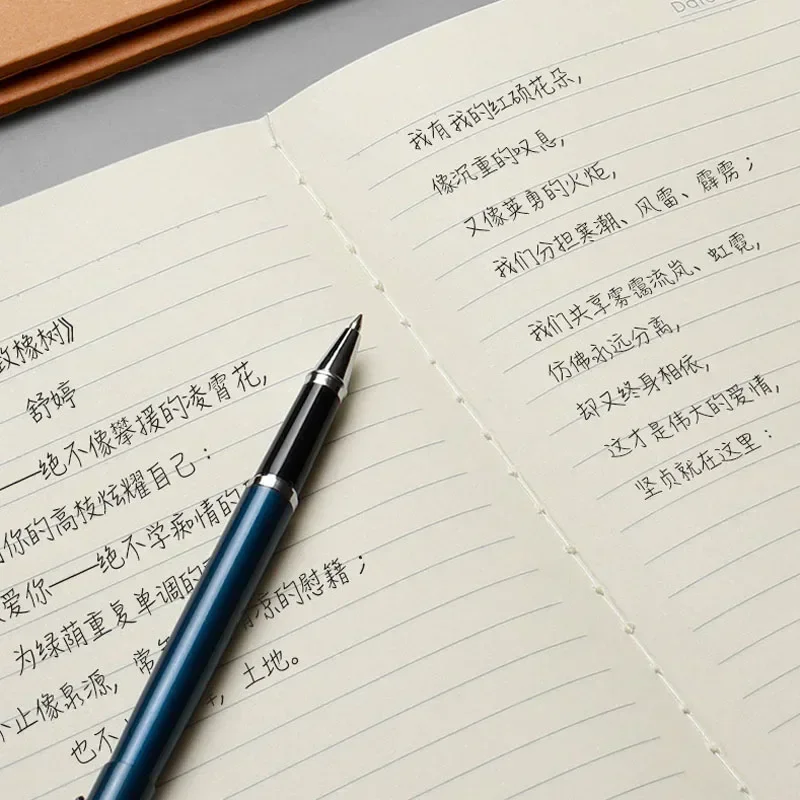 致橡树》
舒婷
——绝不像攀援的凌霄花，
你的高枝炫耀自己：
爱你——绝不学痴情的
为绿荫重复单调的
不止像泉源，常 凉的慰籍；
也不 ，土地。
Date
我有我的红硕花朵，
像沉重的叹息，
又像英勇的火炬，
我们分担寒潮、风雷、霹雳；
我们共享雾霭流岚、虹霓，
仿佛永远分离，
却又终身相依，
这才是伟大的爱情，
坚贞就在这里：